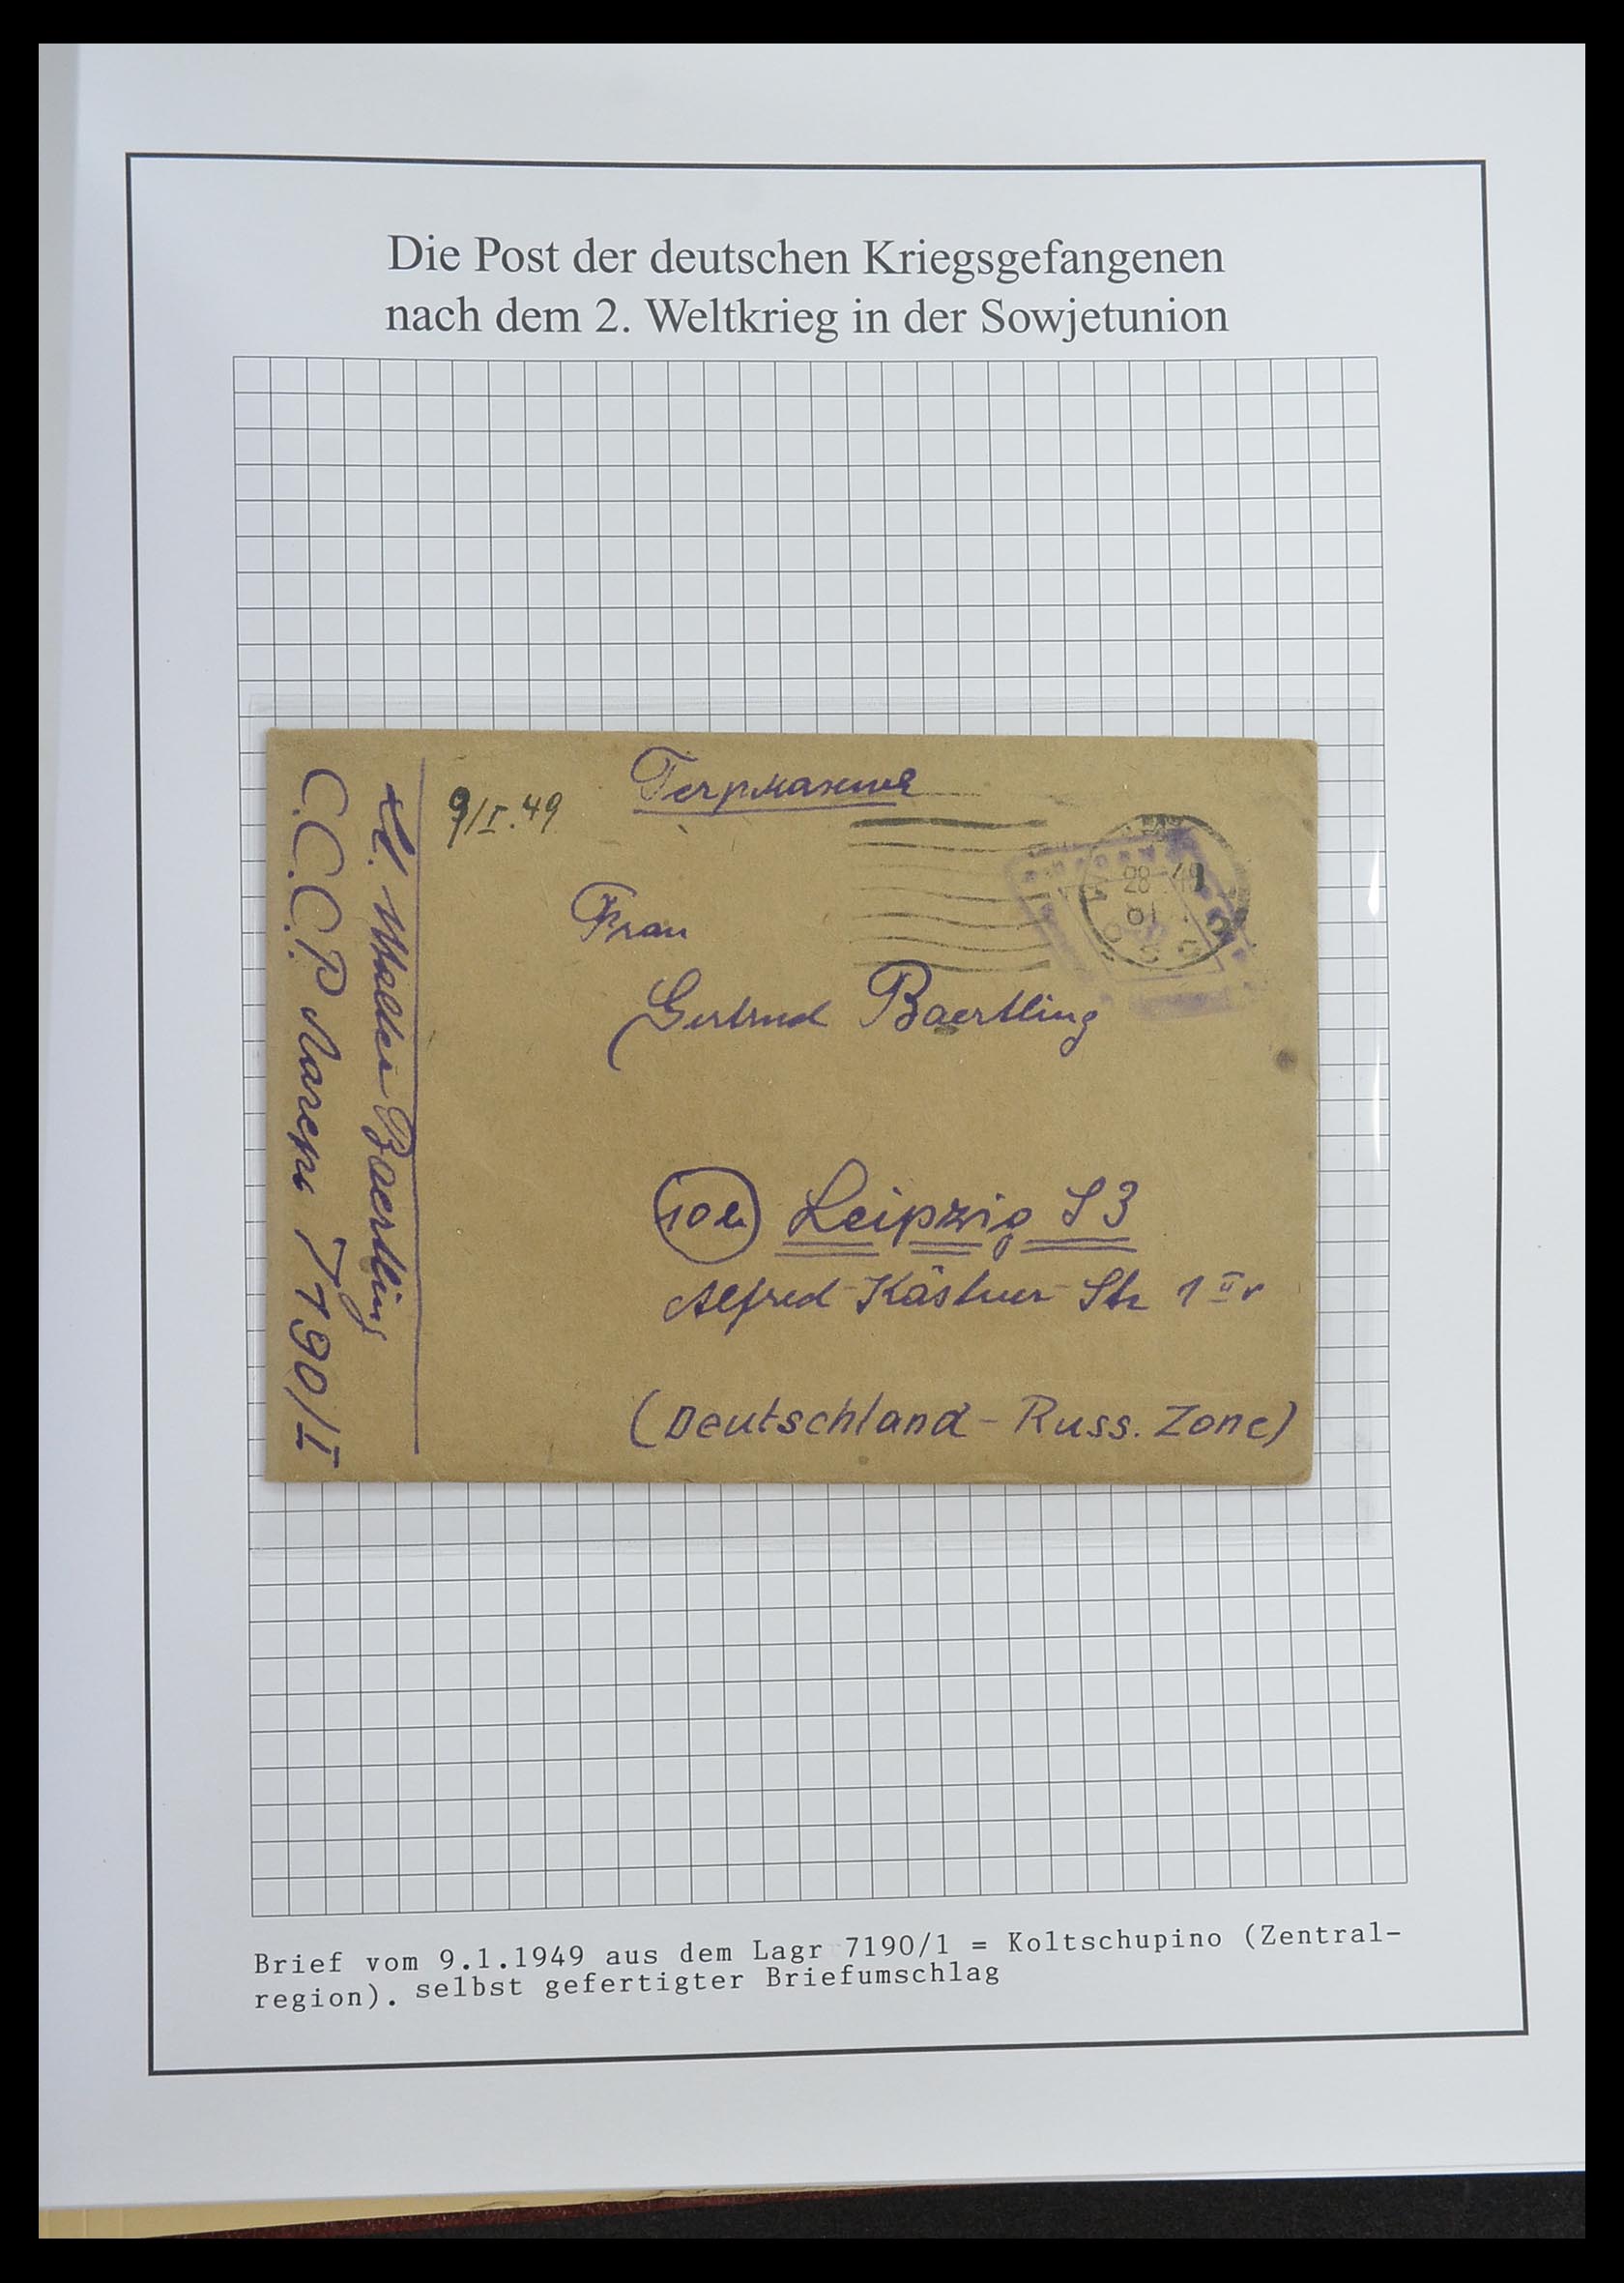 Die Post der deutschen Kriegsgefangenen
nach dem 2. Weltkrieg in der Sowjetunion
Германия
9/I.49
28 49
01
Frau
Gertrud Baertling
10b Leipzig S3
Alfred-Kästner-Str 1 II r
(Deutschland - Russ. Zone)
Walter Baertling
C.C.C.P. Лагерь 7190/I
Brief vom 9.1.1949 aus dem Lagr 7190/1 = Koltschupino (Zentral-
region). selbst gefertigter Briefumschlag